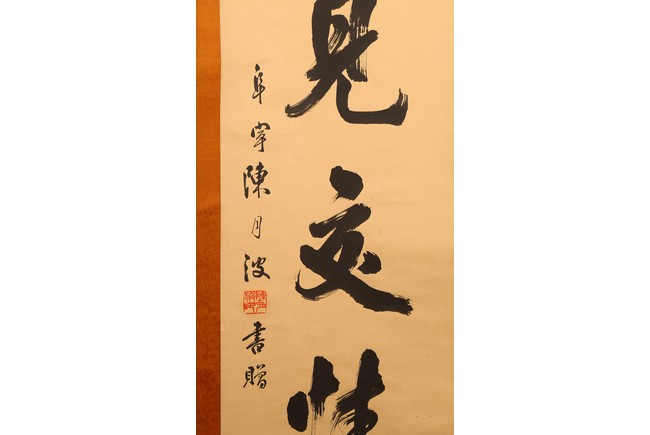 見交情
阜寧陳月波
書贈